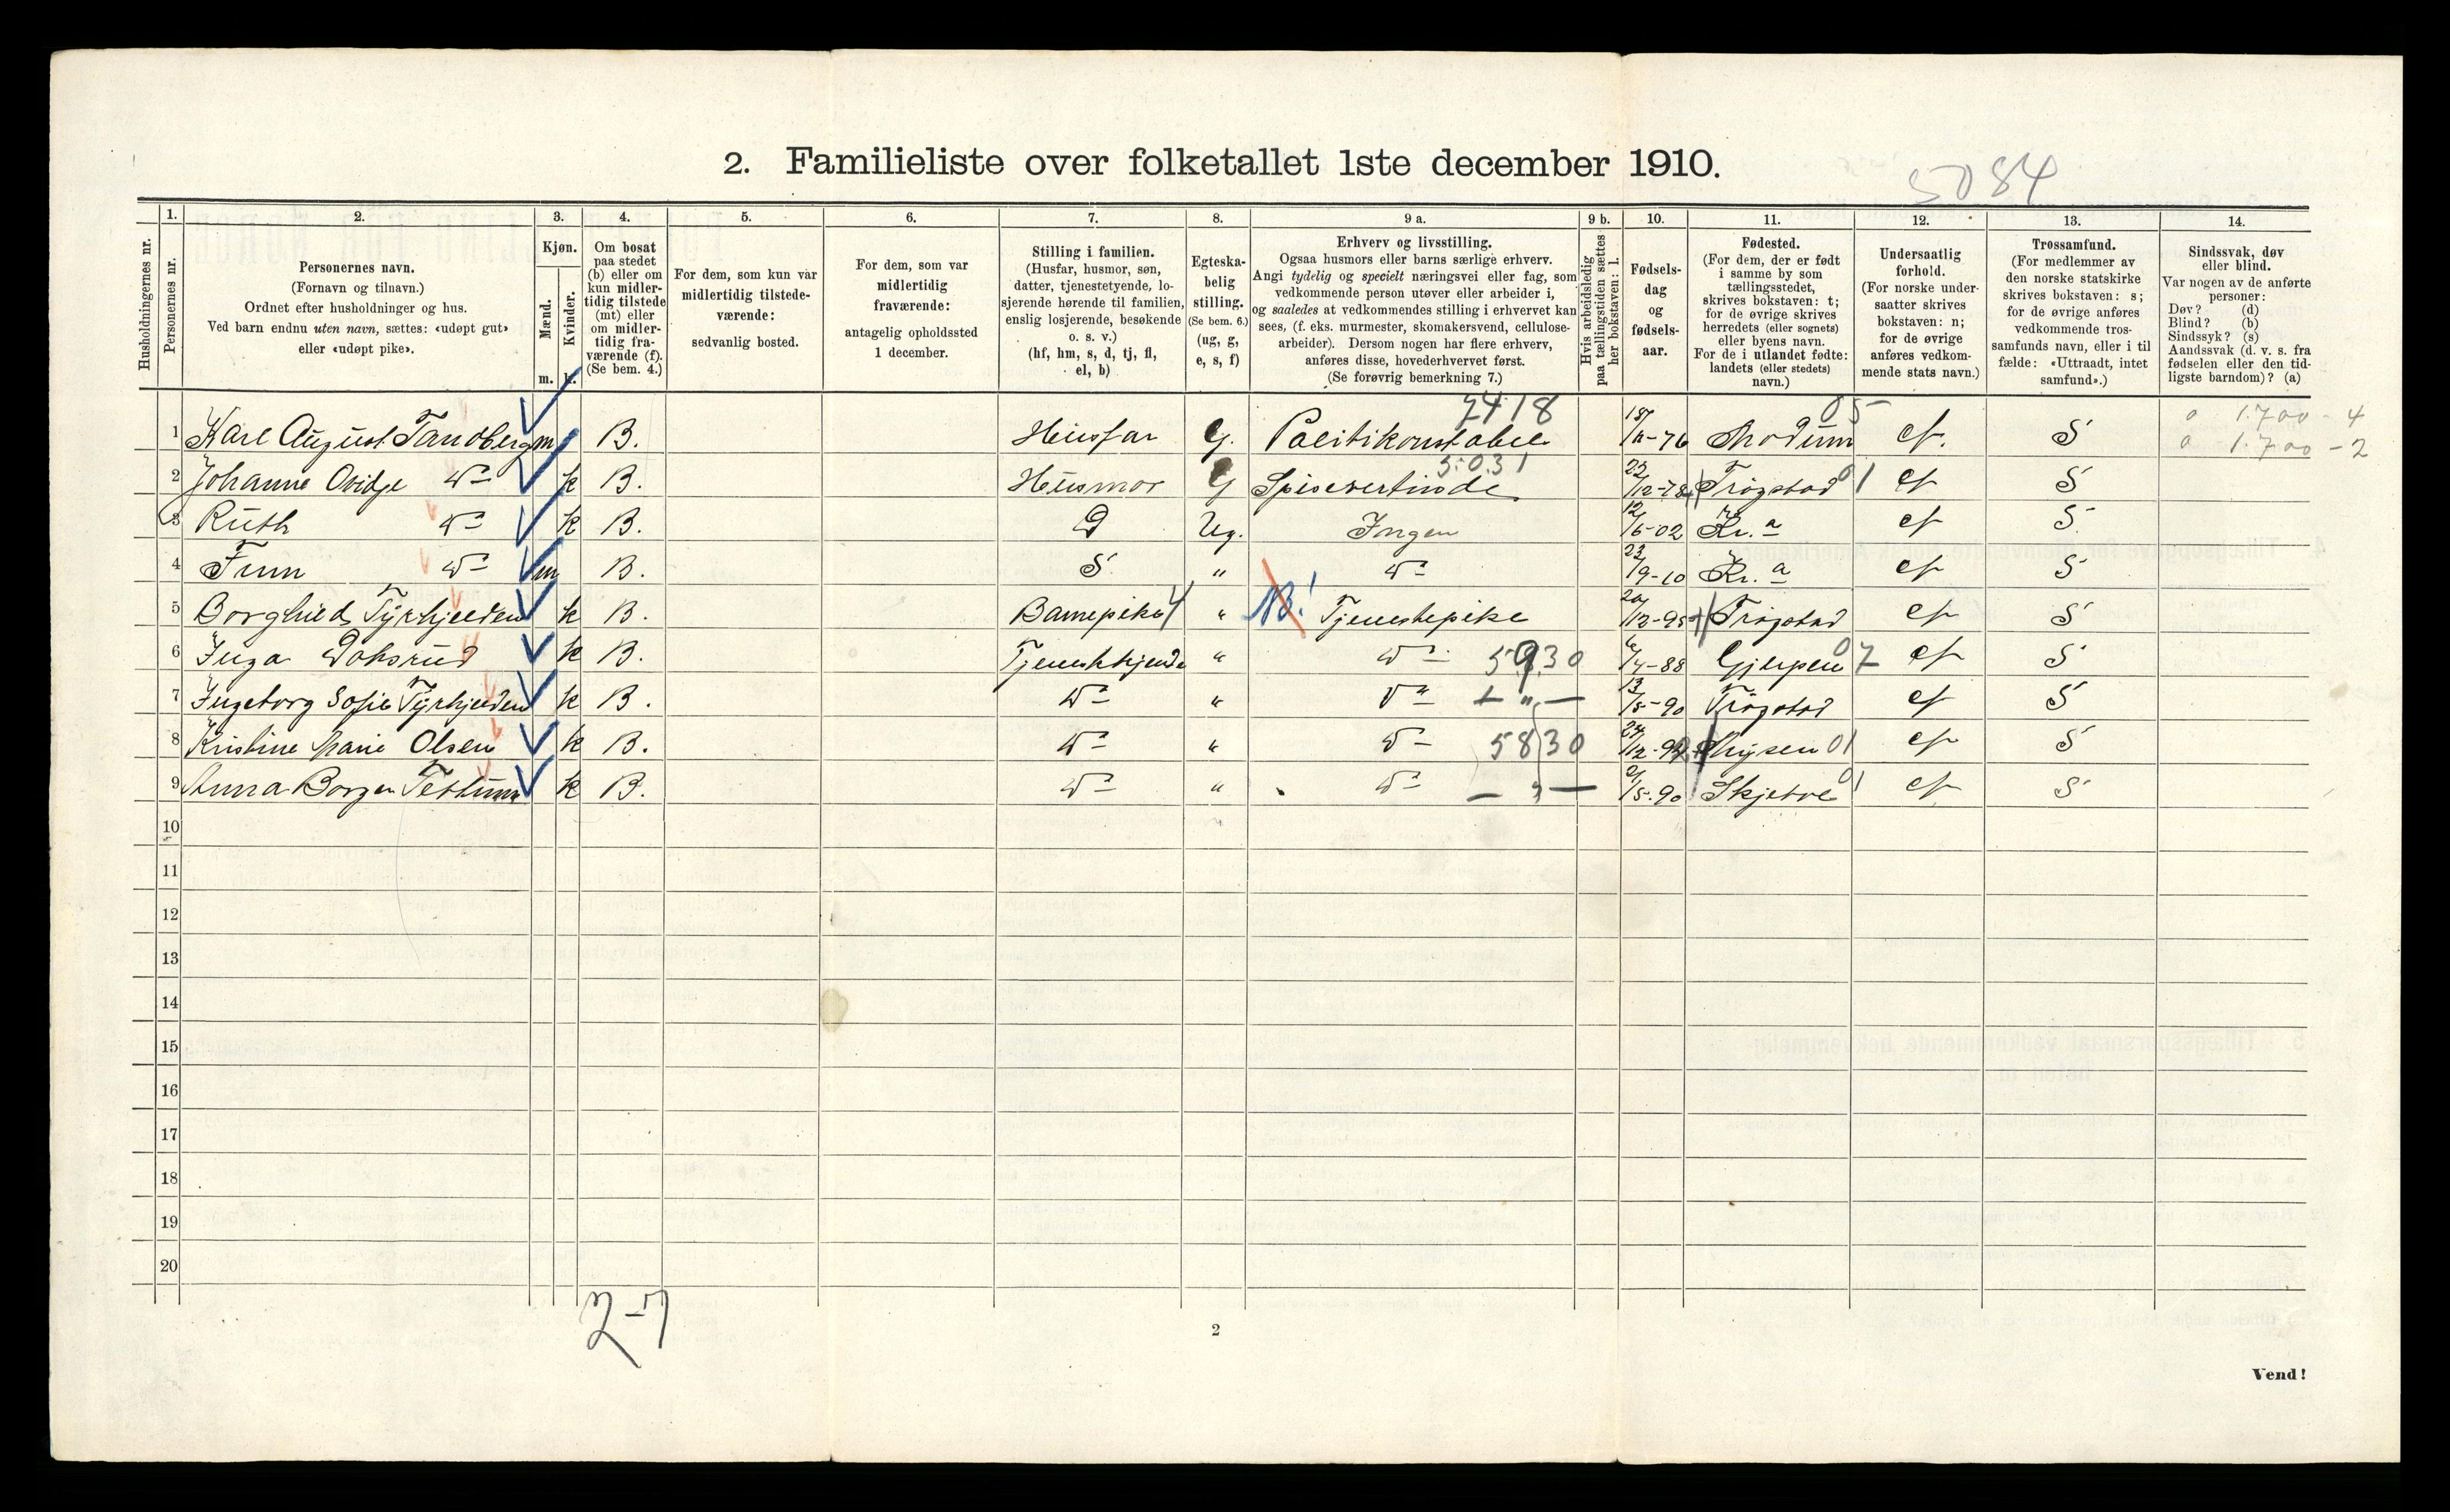 5084
2. Familieliste over folketallet 1ste december 1910.
Husholdningernes nr.
1. Personernes nr.
2. Personernes navn. (Fornavn og tilnavn.) Ordnet efter husholdninger og hus. Ved barn endnu uten navn, sættes: «udøpt gut» eller «udøpt pike».
3. Kjøn. Mænd. m. Kvinder. k.
4. Om bosat paa stedet (b) eller om kun midlertidig tilstede (mt) eller om midlertidig fraværende (f). (Se bem. 4.)
5. For dem, som kun var midlertidig tilstedeværende: sedvanlig bosted.
6. For dem, som var midlertidig fraværende: antagelig opholdssted 1 december.
7. Stilling i familien. (Husfar, husmor, søn, datter, tjenestetyende, losjerende hørende til familien, enslig losjerende, besøkende o. s. v.) (hf, hm, s, d, tj, fl, el, b)
8. Egteskabelig stilling. (Se bem. 6.) (ug, g, e, s, f)
9 a. Erhverv og livsstilling. Ogsaa husmors eller barns særlige erhverv. Angi tydelig og specielt næringsvei eller fag, som vedkommende person utøver eller arbeider i, og saaledes at vedkommendes stilling i erhvervet kan sees, (f. eks. murmester, skomakersvend, cellulosearbeider). Dersom nogen har flere erhverv, anføres disse, hovederhvervet først. (Se forøvrig bemerkning 7.)
9 b. Hvis arbeidsledig paa tællingstiden sættes her bokstaven: l.
10. Fødselsdag og fødselsaar.
11. Fødested. (For dem, der er født i samme by som tællingsstedet, skrives bokstaven: t; for de øvrige skrives herredets (eller sognets) eller byens navn. For de i utlandet fødte: landets (eller stedets) navn.)
12. Undersaatlig forhold. (For norske undersaatter skrives bokstaven: n; for de øvrige anføres vedkommende stats navn.)
13. Trossamfund. (For medlemmer av den norske statskirke skrives bokstaven: s; for de øvrige anføres vedkommende trossamfunds navn, eller i tilfælde: «Uttraadt, intet samfund».)
14. Sindssvak, døv eller blind. Var nogen av de anførte personer: Døv? (d) Blind? (b) Sindssyk? (s) Aandssvak (d. v. s. fra fødselen eller den tidligste barndom)? (a)
1 Karl August Tandberg m B. Husfar G. Politikonstabel 2418 Modum 05 n. S 1.700 - 4
1.700 - 2
2 Johanne Ovidge Do k B. Husmor G Spisevertinde 5031 22/12-78 Trøgstad 01 n S
3 Ruth Do k B. D Ug. Ingen 12/6-02 Kr.a n S
4 Finn Do m B. S " Do 23/9-10 Kr.a n S
5 Borghild Tyrhjelden k B. Barnepike " NB! Tjenestepike Trøgstad n S
6 Inga k B. " Do 5930 6/4-88 Gjerpen 07 n S
7 Ingeborg Sofie Tyrhjelden k B. Do " Do " 13/5-90 Trøgstad n S
8 Kristine Marie Olsen k B. Do " Do 5830 Mysen 01 n S
9 Anna Borgen k B. Do " Do " Skjebve 01 n S
10
11
12
13
14
15
16
17
18
19
20
2
Vend!